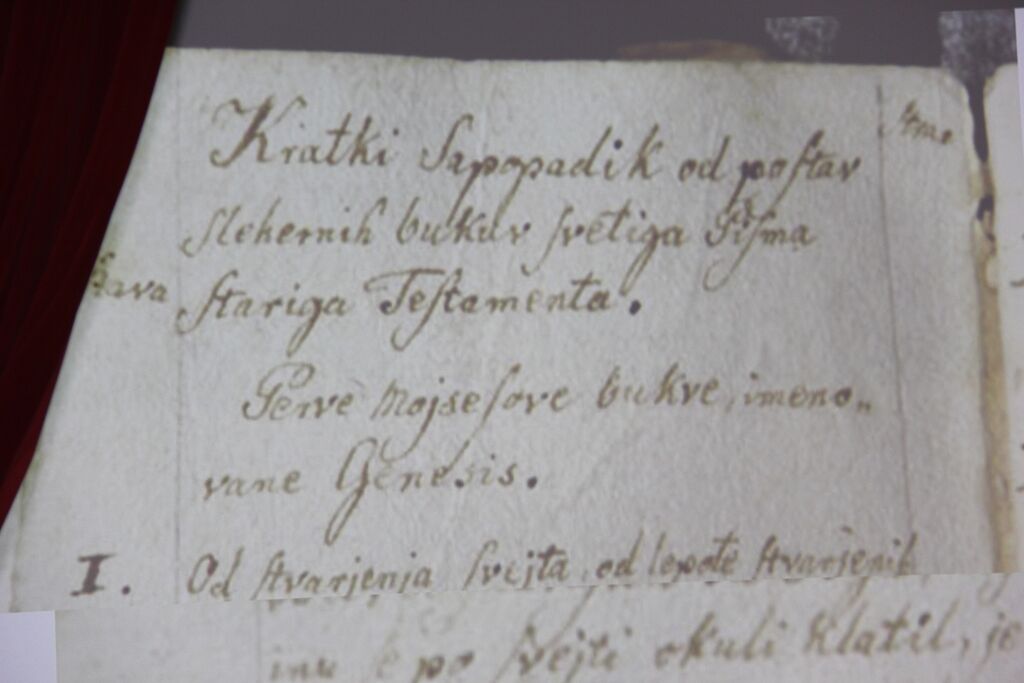 Kratki Sapopadik od postav
slehernih bukuv svetiga Pisma
stariga Testamenta.
Perve Mojsesove bukve, imeno„
vane Genesis.
I. Od stvarjenja svejta, od lepote stvarjenih
po svejti okuli klatil, je